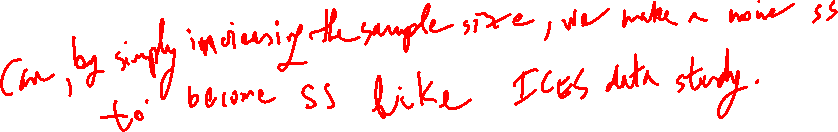 Can, by simply increasing the sample size, we make a non SS
to become SS like ICES data study.